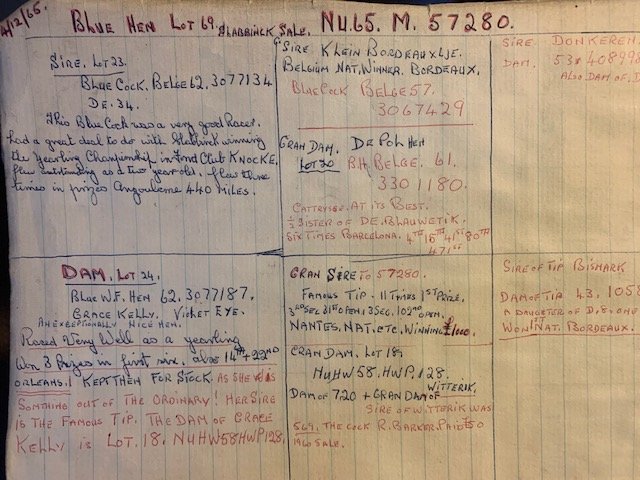 4/12/65. BLUE HEN LOT 69. SLABBINCK SALE. NU.65. M. 57280.
SIRE. LOT 23.
BLUE COCK. BELGE 62. 3077134
DE. 34.
This Blue Cock was a very good Racer.
had a great deal to do with Slabbinck winning
the yearling Championship in Fond Club KNOCKE.
flew outstanding as a two year old. flew three
times in prizes Angouleme 440 MILES.
SIRE KLEIN BORDEAUX LJE.
BELGIUM NAT. WINNER. BORDEAUX.
BLUE COCK BELGE 57.
3067429
GRAN DAM. DE POL HEN
LOT 20 B.H. BELGE. 61.
3301180.
CATTRYSSE. AT ITS BEST.
1/2 SISTER OF DE. BLAUWETIK.
SIX TIMES BARCELONA. 4TH 15TH 41ST 80TH
471ST
SIRE DONKEREN.
DAM. 53 408998
ALSO. DAM OF. D
DAM. LOT 24.
BLUE W.F. HEN 62. 3077187.
GRACE KELLY. VIOLET EYE.
AN EXCEPTIONALLY NICE HEN.
Raced Very Well as a yearling
Won 3 Prizes in first six. also 14TH + 22ND
ORLEANS. I KEPT HEN FOR STOCK. AS SHE WAS
SOMTHING OUT OF THE ORDINARY! HER SIRE
IS THE FAMOUS TIP. THE DAM OF GRACE
KELLY IS LOT. 18. NUHW58HWP128.
GRAN SIRE TO 57280.
FAMOUS TIP. 11 TIMES 1ST PRIZE.
3RD SEC. 31ST OPEN, 13 SEC. 102ND OPEN.
NANTES. NAT. ETC. WINNING £1000.
GRAN DAM. LOT 18.
NUHW58. HWP. 128.
DAM OF 720 + GRAN DAM OF WITTERIK.
SIRE OF WITTERIK WAS
569. THE COCK R. BARKER. PAID £50
1960 SALE.
SIRE OF TIP BISMARK
DAM OF TIP 43. 1058
A DAUGHTER OF D. 8. ONE
WON 1ST NAT. BORDEAUX.